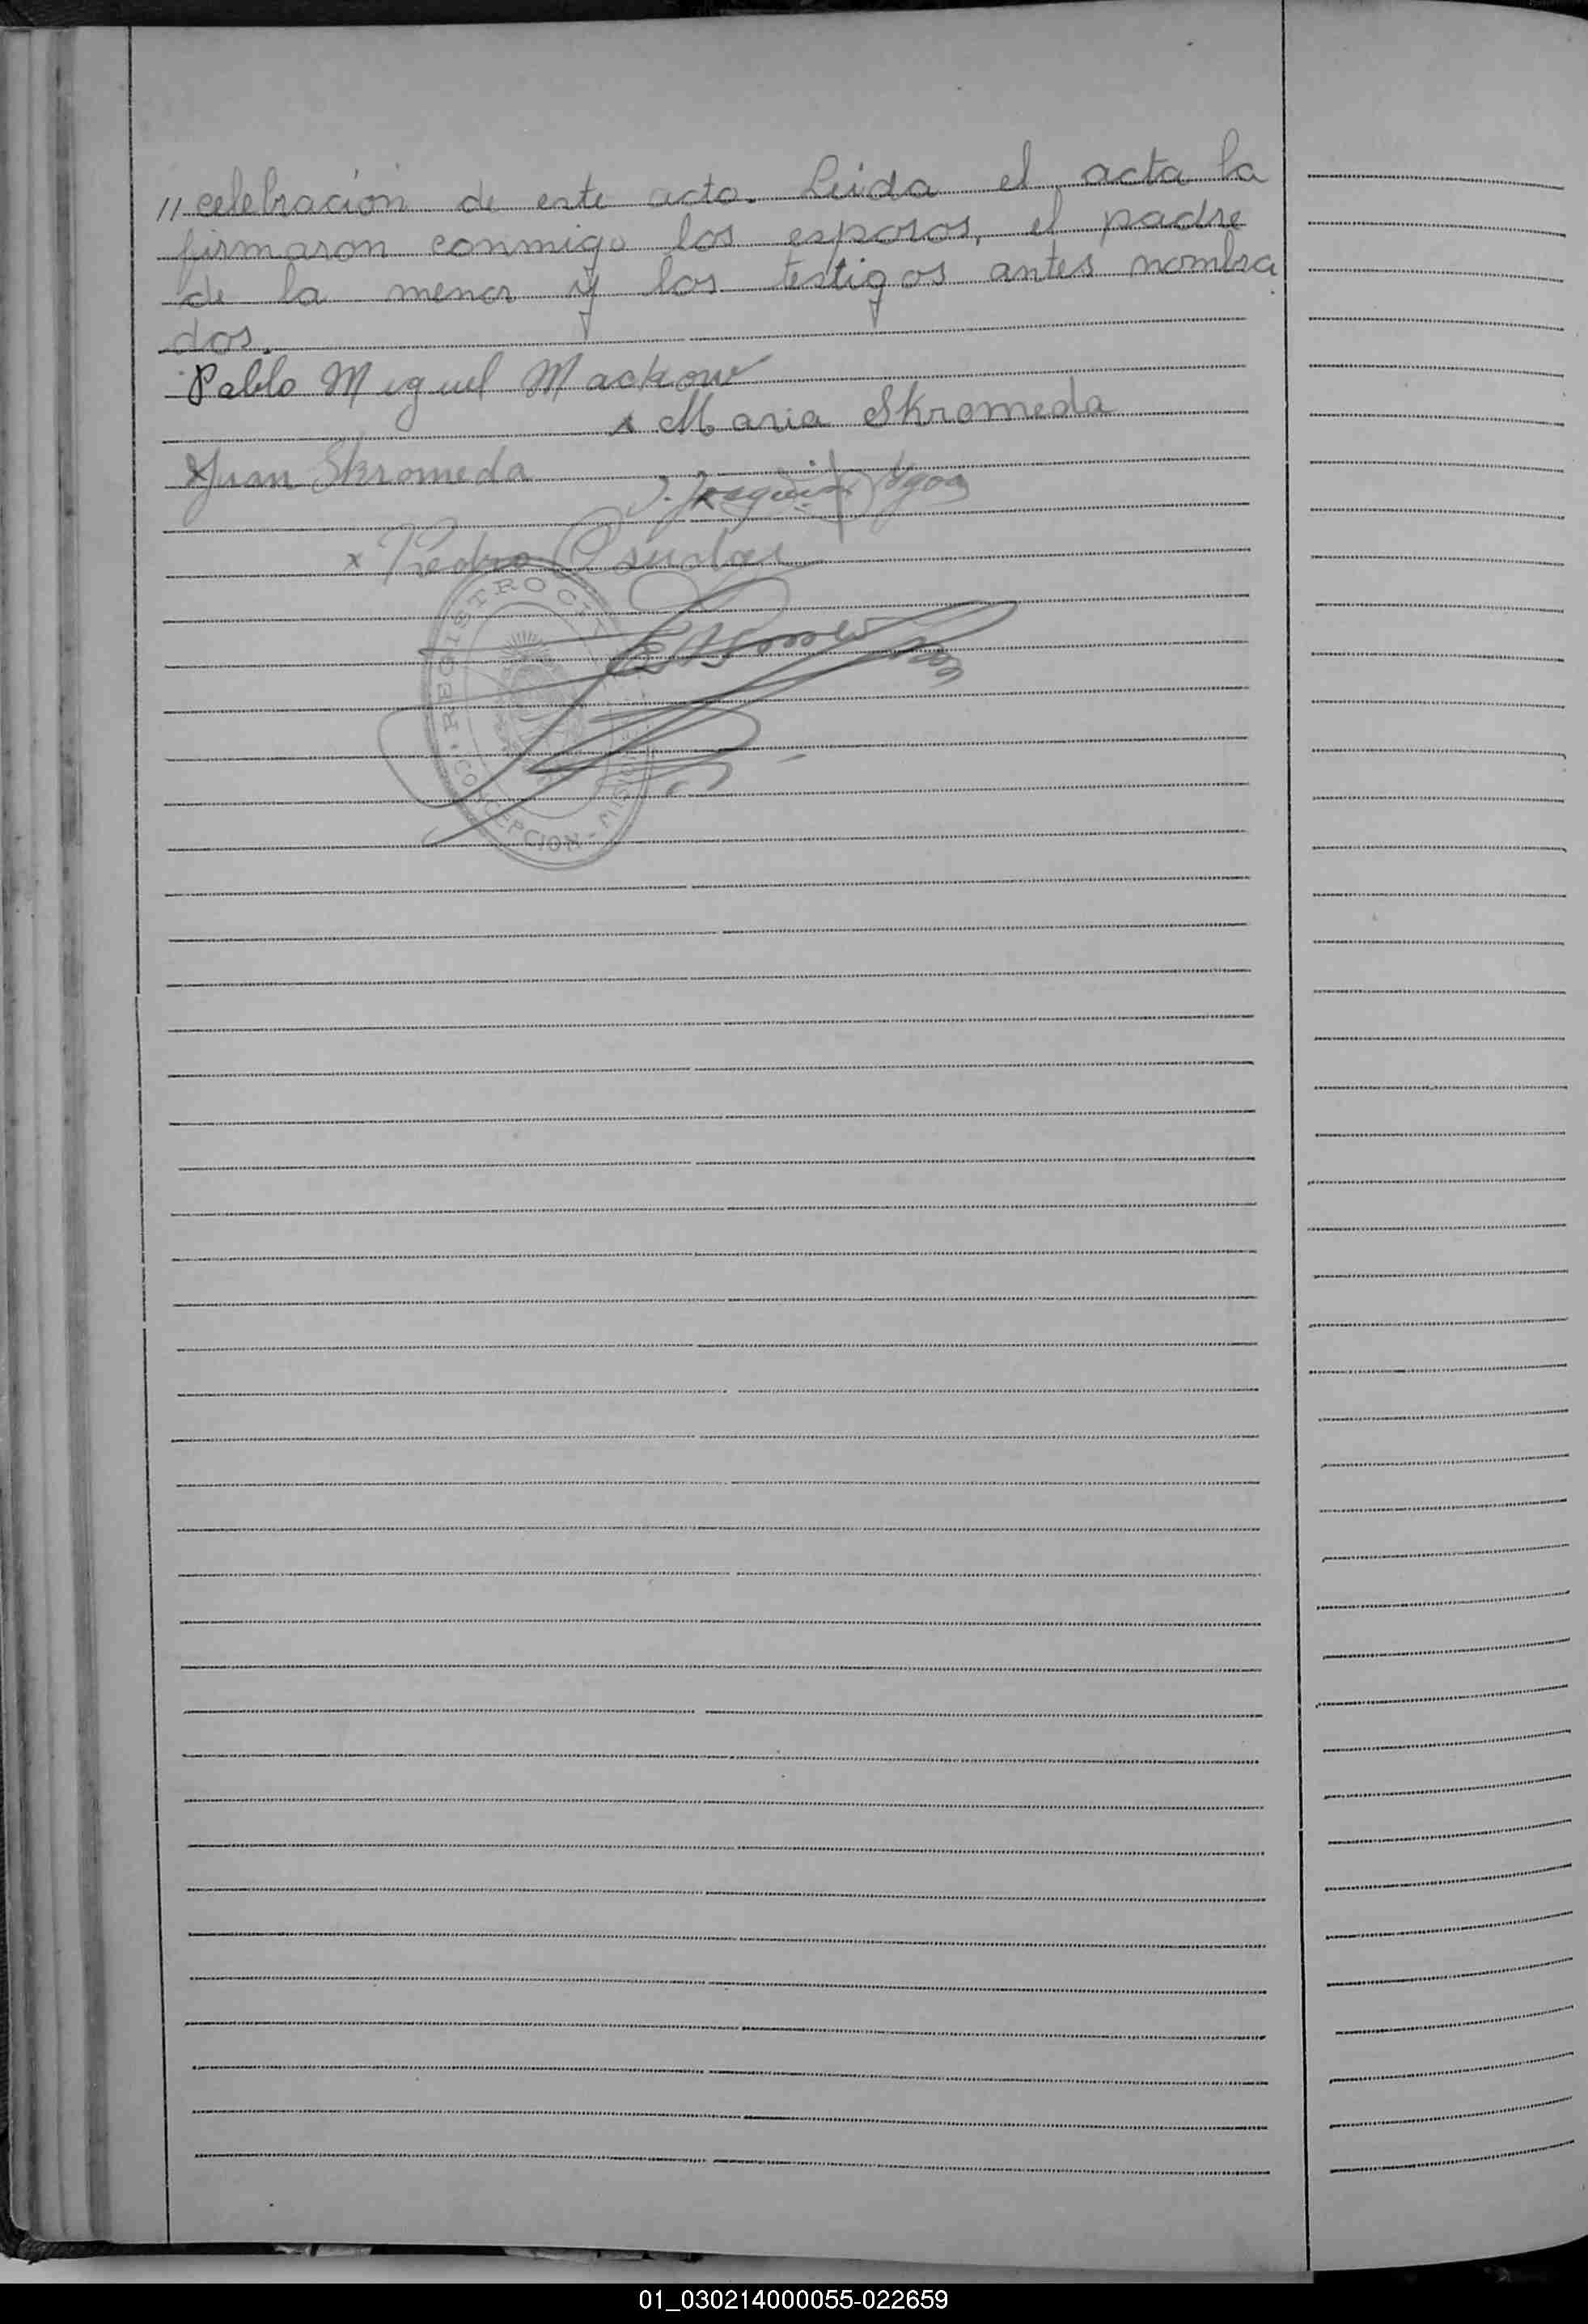 // celebración de este acto. Leida el acta la
firmaron conmigo los esposos, el padre
de la menor y los testigos antes nombra
dos.
Pablo Miguel Mackow
x Maria Skromeda
x Juan Skromeda
J. Joaquin
x Pedro
REGISTRO CIVIL
CONCEPCION
01_030214000055-022659